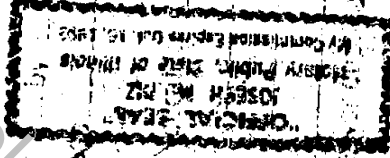 "OFFICIAL SEAL"
JOSEPH
Notary Public, State of Illinois
My Commission Expires Oct. 10, 1992